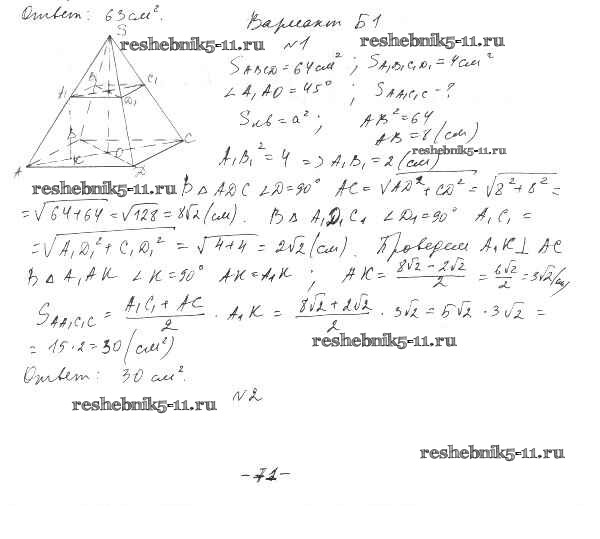 Ответ: 63 см².
Вариант Б1
reshebnik5-11.ru
№1
S_ABCD = 64 см² ; S_A₁B₁C₁D₁ = 4 см²
∠A₁AO = 45° ; S_AA₁C₁C - ?
Sкв = a² ; AB² = 64
AB = 8 (см)
reshebnik5-11.ru
S
A₁
B₁
C₁
D₁
A
B
C
D
K
O
A₁B₁² = 4 => A₁B₁ = 2 (см)
reshebnik5-11.ru
В △ ADC ∠D = 90° AC = √AD² + CD² = √8² + 8² =
= √64+64 = √128 = 8√2 (см). В △ A₁D₁C₁ ∠D₁ = 90° A₁C₁ =
= √A₁D₁² + C₁D₁² = √4+4 = 2√2 (см). Проведем A₁K ⊥ AC
В △ A₁AK ∠K = 90° AK = A₁K ; AK = (8√2 - 2√2)/2 = 6√2/2 = 3√2 (см)
S_AA₁C₁C = (A₁C₁ + AC)/2 · A₁K = (8√2 + 2√2)/2 · 3√2 = 5√2 · 3√2 =
= 15·2 = 30 (см²)
reshebnik5-11.ru
Ответ: 30 см².
reshebnik5-11.ru
№2
reshebnik5-11.ru
-71-